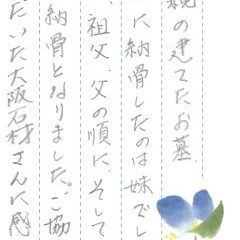 親の建てたお墓
に納骨したのは妹でし
、祖父、父の順に、そして
納骨となりました。ご協
だいた大阪石材さんに感